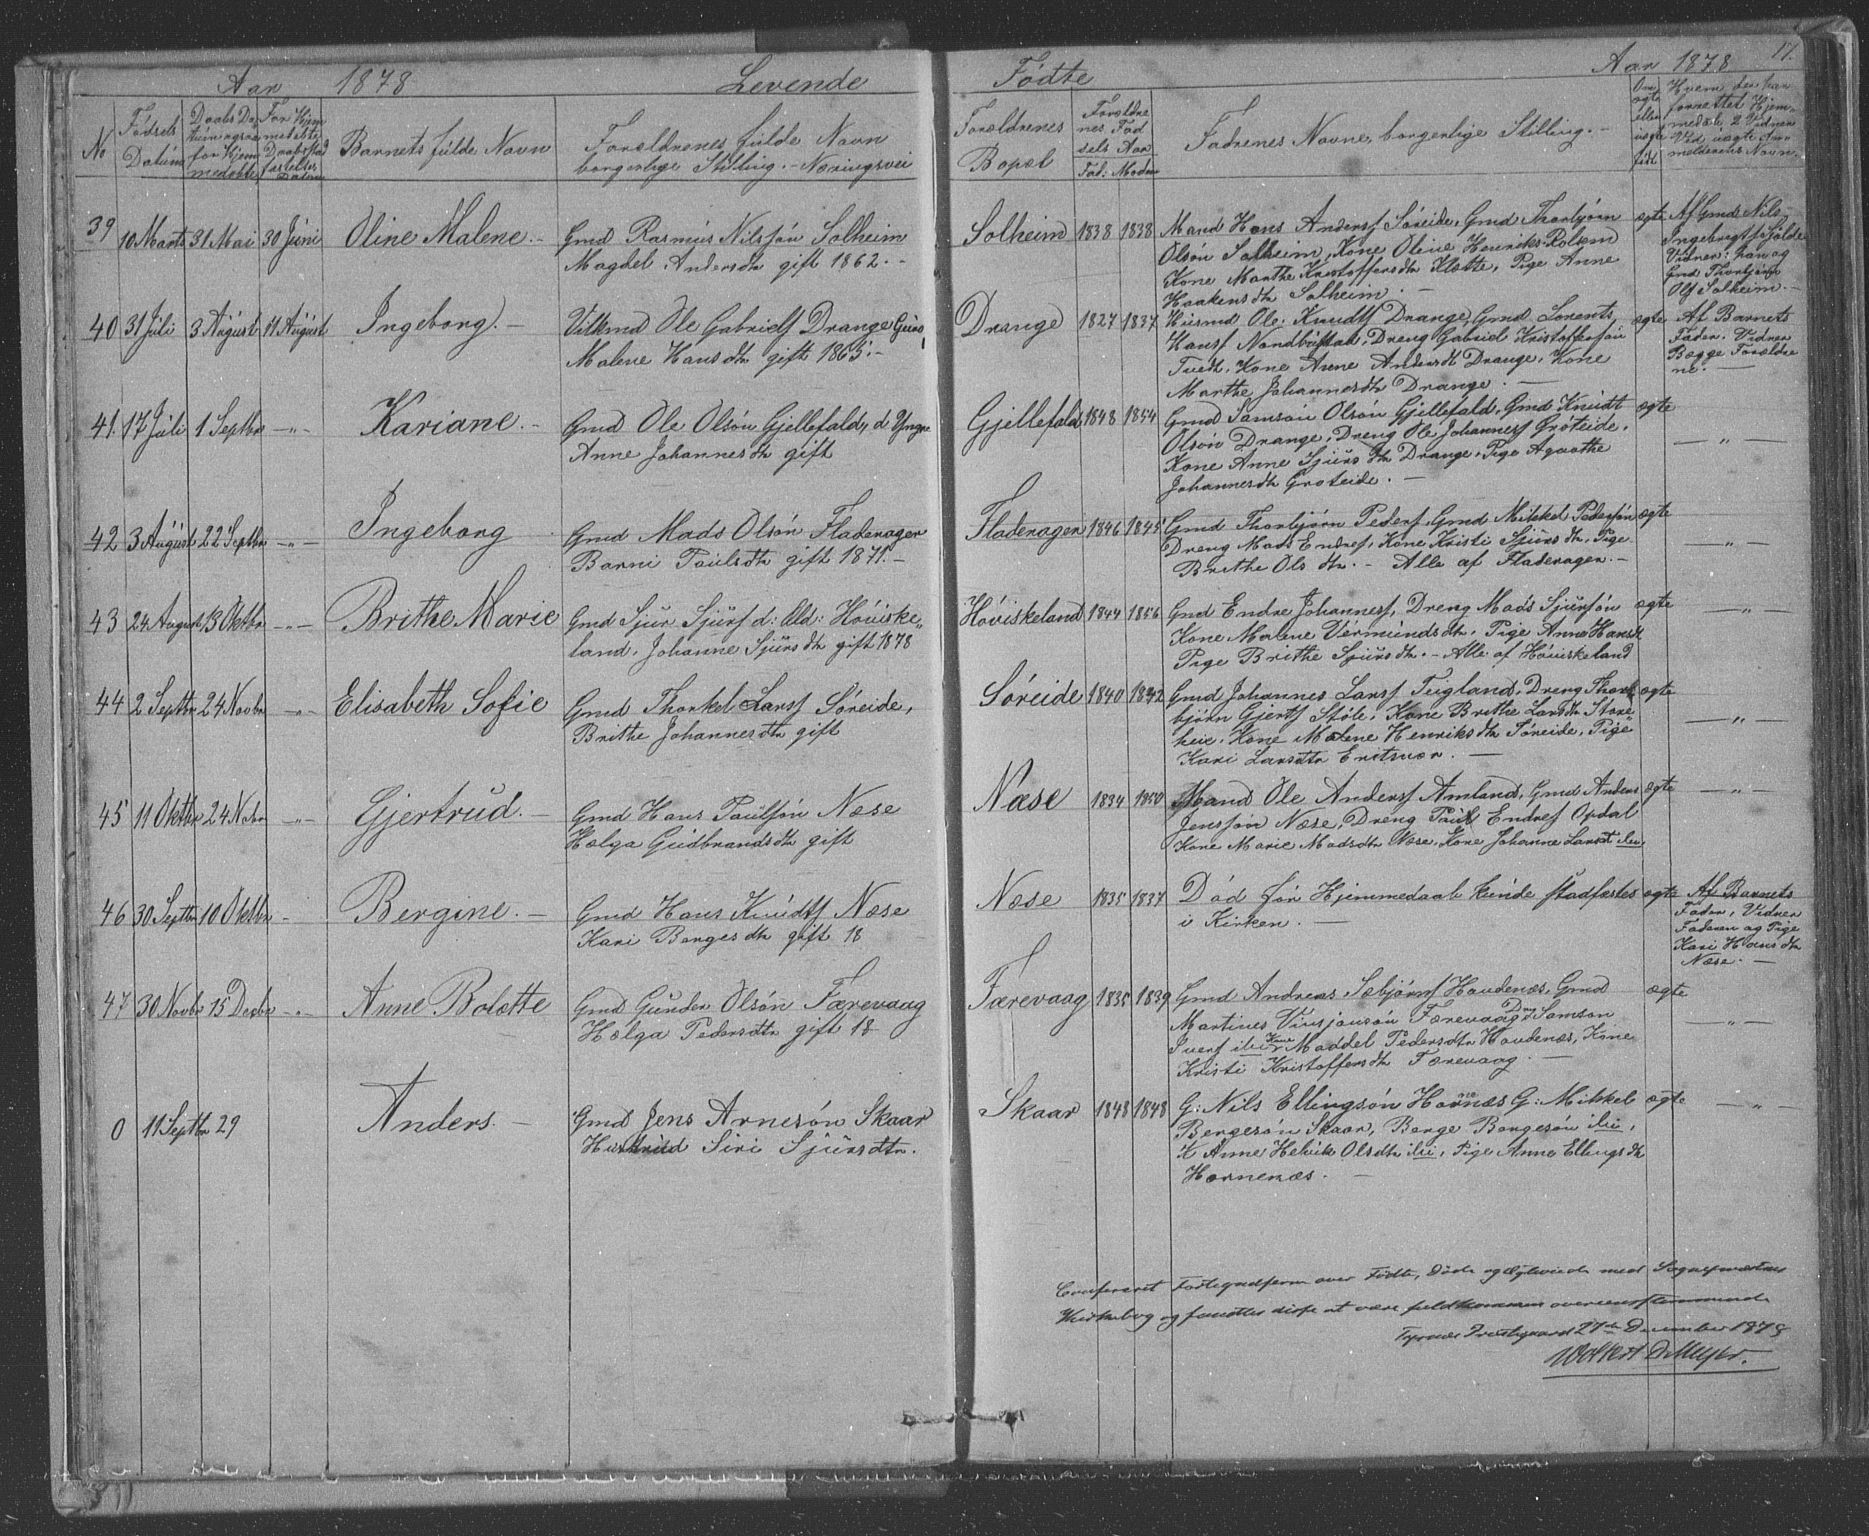 Aar 1878 Levende
Fødte Aar 1878 17.
No
Fødsels Datum
Daabs Datum
Barnets fulde Navn
Forældrenes fulde Navn
borgerlige Stilling. - Næringsvei
Forældrenes
Bopæl
Forældre
nes Fød
sels Aar
Fad: Moder
Faderenes Navne, borgerlige Stilling. -
39 10 Marts 31 Mai 30 Juni Oline Malene. - Gmd Rasmus Nilssøn Solheim
Magdel. Andersdtr gift 1862. -
Solheim 1838 1838 Mand Hans Anderss Søreide, Gmd Thorbjørn
Olsøn Solheim, Kone Oline Henriks Rolsem
Kone Marthe Kristoffersdtr Kløtte, Pige Anne
Haakensdtr Solheim. -
ægte Af Gmd Nils
Vidner: han og
Gmd Thorbjørn
Ols Solheim. -
40 31 Juli 3 August 11 August Ingeborg. - Ole Gabriels Drange Guro
Malene Hansdtr gift 1865. -
Drange 1827 1837 Husmd Ole Knudts Drange, Gmd Lorents
Hanss Nordbustad, Dreng Gabriel Kristoffersøn
Tvedt, Kone Anne Andersdtr Drange, Kone
Marthe Johannesdtr Drange. -
ægte Af Barnets
Fader. Vidner
Begge Forældre
ne. -
41. 17 Juli 1 Septbr -"- Kariane. - Gmd Ole Olsøn Gjellefald, d Yngre
Anne Johannesdtr gift
Gjellefald 1848 1854 Gmd Samson Olsøn Gjellefald, Gmd Knudt
Olsøn Drange, Dreng Ole Johanness Grøteide,
Kone Anne Sjursdtr Drange, Pige Agaathe
Johannesdtr Groteide. -
ægte -"-
42 3 August 22 Septbr -"- Ingeborg Gmd Mads Olsøn Fladeragen
Barni Paulsdtr gift 1871. -
Fladeragen 1846 1845 Gmd Thorbjørn Peders, Gmd Mikkel Pedersøn
Dreng Mads Endres, Kone Kristi Sjursdtr, Pige
Brithe Ols dtr. - Alle af Fladeragen. -
ægte -"-
43 24 August 13 Oktbr -"- Brithe Marie Gmd Sjur Sjurs d: Eld: Høviske
land, Johanne Sjursdtr gift 1878
Høviskeland 1844 1856 Gmd Endre Johanness, Dreng Mads Sjursøn
Kone Malene Vermundsdtr, Pige Anne Hansdt
Pige Brithe Sjursdtr. - Alle af Høviskeland
ægte -"-
44 2 Septbr 24 Novbr -"- Elisabeth Sofie Gmd Thorkel Larss Søreide,
Brithe Johannesdtr gift
Søreide 1840 1842 Gmd Johannes Larss Teigland, Dreng Thor
bjørn Gjerts Støle, Kone Brithe Larsdtr Store
heie, Kone Malene Henriksdtr Søreide, Pige
Kari Larsdtr Eritsvær. -
ægte -"-
45 11 Oktbr 24 Nvbr -"- Gjertrud. - Gmd Hans Paulsøn Næse
Helga Gudbrandsdtr gift
Næse 1834 1850 Mand Ole Anderss Amland, Gmd Anders
Jenssøn Næse, Dreng Paul Endres Opdal
Kone Marie Madsdtr Næse, Kone Johanne Larsdt ibid.
ægte -"-
46 30 Septbr 10 Oktbr - Bergine. - Gmd Hans Knudts Næse
Kari Bergesdtr gift 18
Næse 1835 1837 Død før Hjemmedaab kunde stadfæstes
i Kirken. -
ægte Af Barnets
Fader, Vidner
Faderen og Pige
Kari Hansdtr
Næse. -
47 30 Novbr 15 Decbr -"- Anne Bolette Gmd Gunder Olsøn Færevaag
Hælga Pedersdtr gift 18
Færevaag 1835 1839 Gmd Andreas Sebjørns Haudenæs, Gmd
Martines Vinsjansøn Færevaag, Drng Samson
Ivers ibid Kone Maddel Pedersdtr Haudenæs, Kone
Kristi Kristoffersdtr Færevaag. -
ægte -"-
0 11 Septbr 29 Anders. - Gmd Jens Arnesøn Skaar
Hustrue Siri Sjursdtr.
Skaar 1848 1848 G: Nils Ellingsøn Hornæs G: Mikkel
Bergesøn Skaar, Berge Bergesøn ibid,
K Anne Helvik Olsdtr ibid, Pige Anne Ellingsdtr
Hornenæs. -
ægte -"-
Confereret Fortegnelserne over Fødte, Døde og Ægteviede med Sognepræstens
Kirkebog og fundet disse at være fuldkommen overeensstemmende
Tysnes Præstegaard 27de December 1878
Wollert D Meyer.